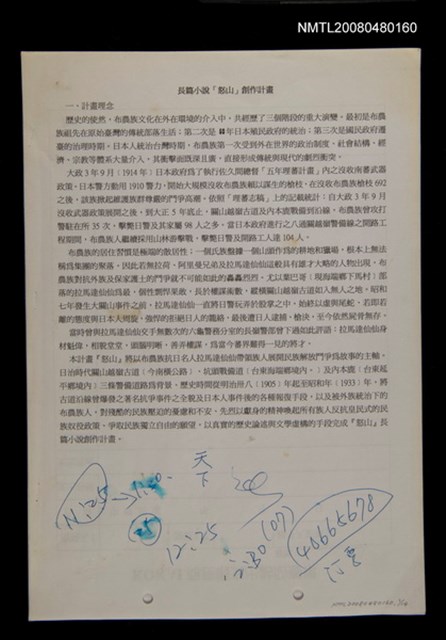 NMTL20080480160
長篇小說「怒山」創作計畫
一、計畫理念
歷史的徒然，布農族文化在外在環境的介入中，共經歷了三個階段的重大演變，最初是布農
族祖先在原始臺灣的傳統部落生活；第二次是 年日本殖民政府的統治；第三次是國民政府遷
臺的治理時期。日本人統治台灣時期，布農族第一次受到外在世界的政治制度、社會結構、經
濟、宗教等體系大量介入，其衝擊面既深且廣，直接形成傳統與現代的劇烈衝突。
大政 3 年 9 月（1914 年）日本政府為了執行佐久間總督「五年理蕃計畫」內之沒收南蕃武器
政策，日本警方動用 1910 警力，開始大規模沒收布農族賴以謀生的槍枝，在沒收布農族槍枝 692
之後，該族掀起維護族群尊嚴的鬥爭高潮。依照『理蕃志稿』上的記載統計：自大政 3 年 9 月
沒收武器政策展開之後，到大正 5 年底止，關山越嶺古道及內本鹿戰備到沿線，布農族曾攻打
警駐在所 35 次，擊斃日警及其家屬 98 人之多，當日本政府進行之八通關越嶺警備線之開路工
程期間，布農族人繼續採用山林游擊戰，擊斃日警及開路工人達 104 人。
布農族的居住習慣是極端的散居性；一個氏族盤據一個山頭作為的耕地和獵場，根本上無法
稱為集團的聚落，因此若無拉荷．阿里曼兄弟及拉馬達仙仙這般具有雄才大略的人物出現，布
農族對抗外族及保家護土的鬥爭就不可能如此的轟轟烈烈。尤以葉巴哥（現海端鄉下馬村）部
落的拉馬達仙仙為最，個性剽悍果敢、長於權謀風數，縱橫關山越嶺古道如入無人之地。昭和
七年發生大關山事件之前，拉馬達仙仙一直將日警玩弄於股掌之中，始終以虛與尾蛇、若即若
離的態度與日本人周旋，強悍的拒絕日人的籠絡，最後遭日人逮捕、槍決，至今依然屍骨無存。
當時曾與拉馬達仙仙交手無數次的六龜警務分室的長嶺警部曾下過如此評語：拉馬達仙仙身
材魁偉，相貌堂堂，頭腦明晰、善弄權謀，為當今蕃界難得一見的將才。
本計畫『怒山』將以布農族抗日名人拉馬達仙仙帶領族人展開民族解放鬥爭故事的主軸。
日治時代關山越嶺古道（今南橫公路）、坑頭戰備道（台東海端鄉境內。）及內本鹿（台東延
平鄉境內）三條警備道路為背景，歷史時間從明治卅八（1905）年起至昭和年（1933）年。將
古道沿線曾爆發之著名抗爭事件之全貌及日本人事件後的各種報復手段，以及被外族統治下的
布農族人，對殘酷的民族壓迫的憂慮和不安、先烈以獻身的精神喚起所有族人反抗皇民式的民
族奴役政策、爭取民族獨立自由的願望，以真實的歷史論述與文學虛構的手段完成『怒山』長
篇小說創作計畫。
天下
11:25
25
12:25
(07)
40665678
NMTL20080480160